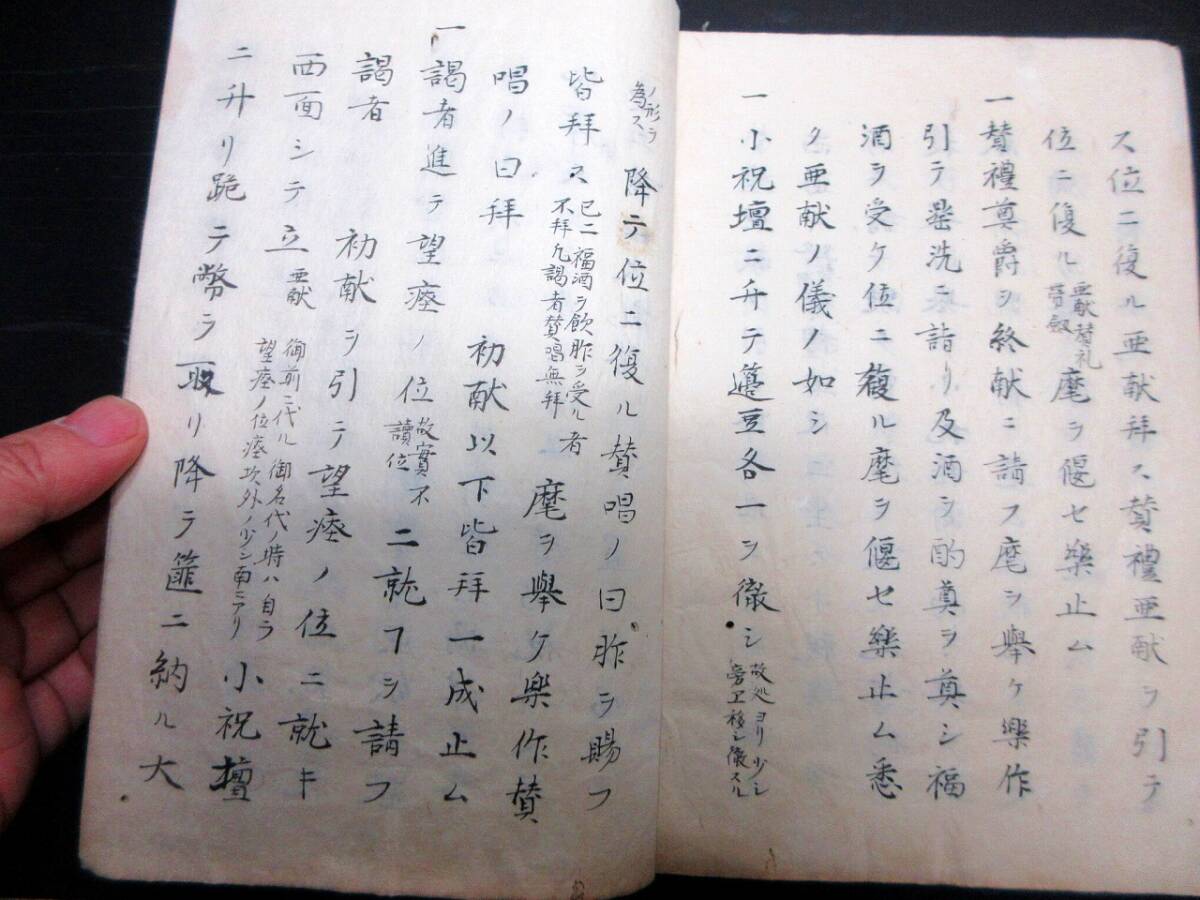 ス位ニ復ル亜献拜ス賛禮亜献ヲ引テ
位ニ復ル亜献賛礼麾ヲ偃セ樂止ム
一賛禮尊爵ヲ終献ニ請フ麾ヲ舉ケ樂作
引テ罍洗ニ詣リ及酒ヲ酌奠ヲ奠シ福
酒ヲ受ケ位ニ復ル麾ヲ偃セ樂止ム悉
ク亜献ノ儀ノ如シ
一小祝壇ニ升テ籩豆各一ヲ徹シ故処ヨリ少シ旁エ移シ徹スル
ノ形ヲ為ス降テ位ニ復ル賛唱ノ曰胙ヲ賜フ
皆拜ス已ニ福酒ヲ飲胙ヲ受ル者不拜凡謁者賛唱無拜麾ヲ舉ク樂作賛
唱ノ曰拜 初献以下皆拜一成止ム
一謁者進テ望瘞ノ位故實不讀位ニ就フヲ請フ
謁者 初献ヲ引テ望瘞ノ位ニ就キ
西面シテ立亜献御前ニ代ル御名代ノ時ハ自ラ望瘞ノ位瘞坎外ノ少シ南ニアリ小祝壇
ニ升リ跪テ幣ヲ取リ降テ篚ニ納ル大